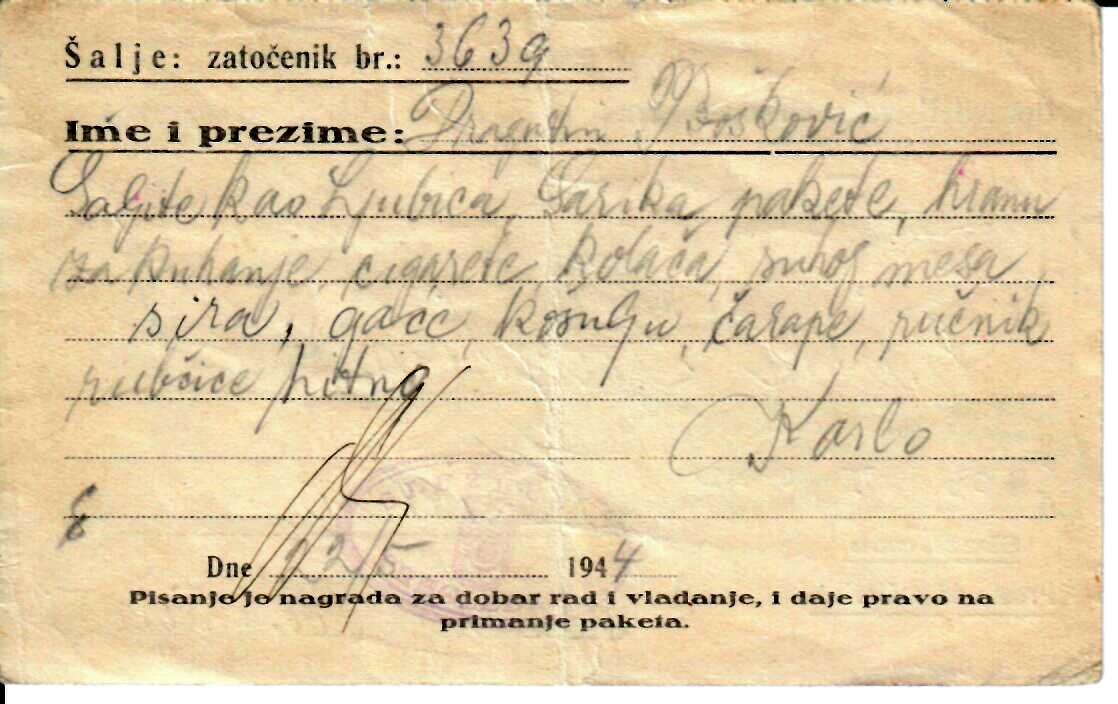 Šalje: zatočenik br.: 3639
Ime i prezime: Dragutin Bošković
Šaljite kao Ljubica, Sarika, pakete, hranu
za kuhanje, cigarete, kolača, suhog mesa,
sira, gaće, košulju, čarape, ručnik
rubčice hitno
Karlo
Dne 1944
Pisanje je nagrada za dobar rad i vladanje, i daje pravo na
primanje paketa.